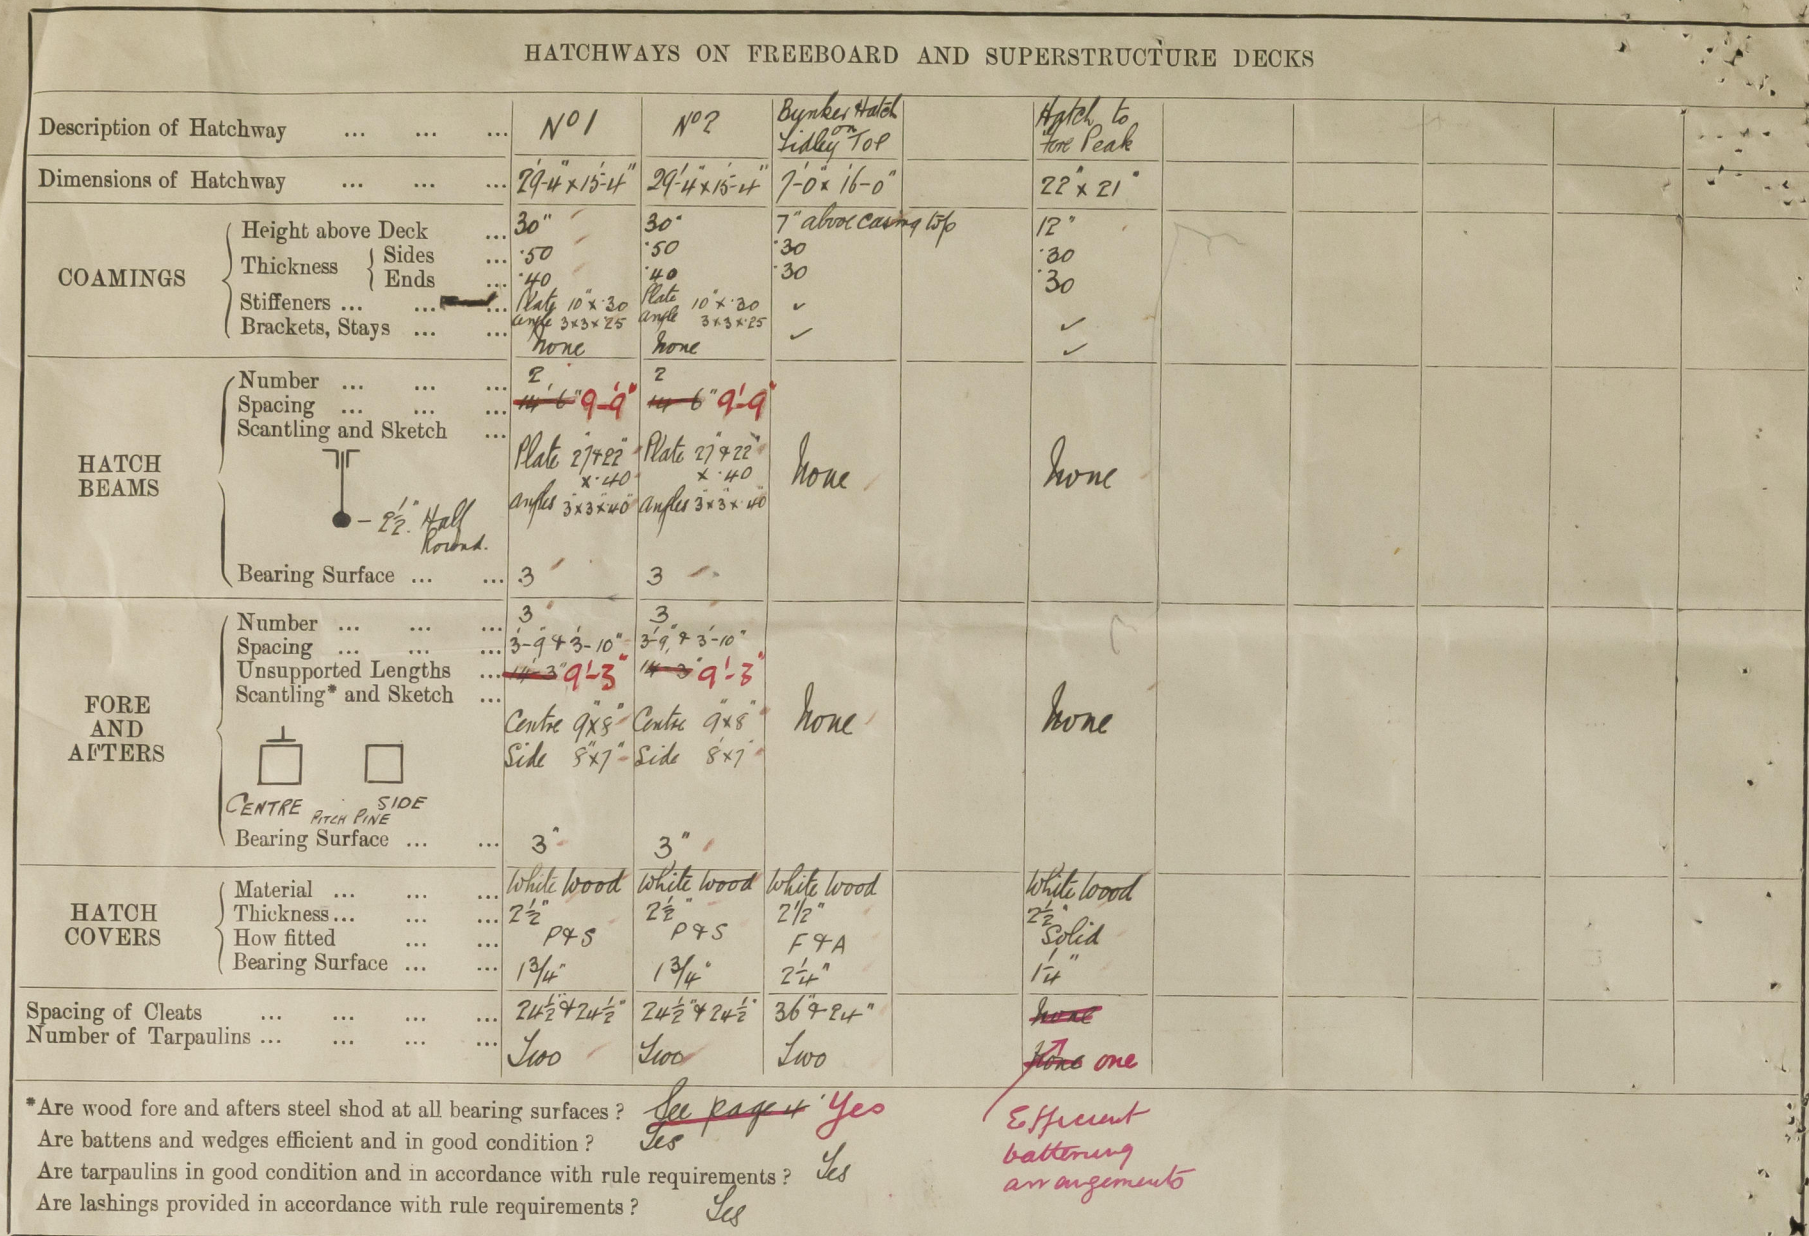 HATCHWAYS ON FREEBOARD AND SUPERSTRUCTURE DECKS
Description of Hatchway ... ... ... No 1 No 2 Bunker Hatch on Fidley Top Hatch to Fore Peak
Dimensions of Hatchway ... ... ... 29'-4" x 15'-4" 29'-4" x 15'-4" 7'-0" x 16'-0" 22" x 21"
COAMINGS
Height above Deck ... 30" 30" 7" above casing top 12"
Thickness Sides ... .50 .50 .30 .30
Ends ... .40 .40 .30 .30
Stiffeners ... ... ... Plate 10" x .30 Plate 10" x .30 ✓ ✓
angle 3 x 3 x .25 angle 3 x 3 x .25
Brackets, Stays ... ... None None ✓ ✓
HATCH BEAMS
Number ... ... ... 2 2
Spacing ... ... ... 14'-6" 9'-9" 14'-6" 9'-9"
Scantling and Sketch ...
Plate 27 & 22" Plate 27" & 22" None None
x .40 x .40
angles 3" x 3" x .40" angles 3" x 3" x .40"
2½" Half
Round.
Bearing Surface ... ... 3 3
FORE AND AFTERS
Number ... ... ... 3 3
Spacing ... ... ... 3'-9" & 3'-10" 3'-9" & 3'-10"
Unsupported Lengths ... 14'-3" 9'-3" 14'-3" 9'-3"
Scantling* and Sketch ...
Centre 9" x 8" Centre 9" x 8" None None
Side 8" x 7" Side 8 x 7"
CENTRE SIDE
PITCH PINE
Bearing Surface ... ... 3" 3"
HATCH COVERS
Material ... ... ... White Wood White Wood White Wood White Wood
Thickness... ... ... 2½" 2½" 2½" 2½"
How fitted ... ... P & S P & S F & A Solid
Bearing Surface ... ... 1¾" 1¾" 2¼" 1¼"
Spacing of Cleats ... ... ... ... 24½" & 24½" 24½" & 24½" 36" & 24" None
Number of Tarpaulins ... ... ... ... Two Two Two None one
*Are wood fore and afters steel shod at all bearing surfaces? See page 4 Yes
Are battens and wedges efficient and in good condition? Yes
Are tarpaulins in good condition and in accordance with rule requirements? Yes
Are lashings provided in accordance with rule requirements? Yes
Efficient
battening
arrangements